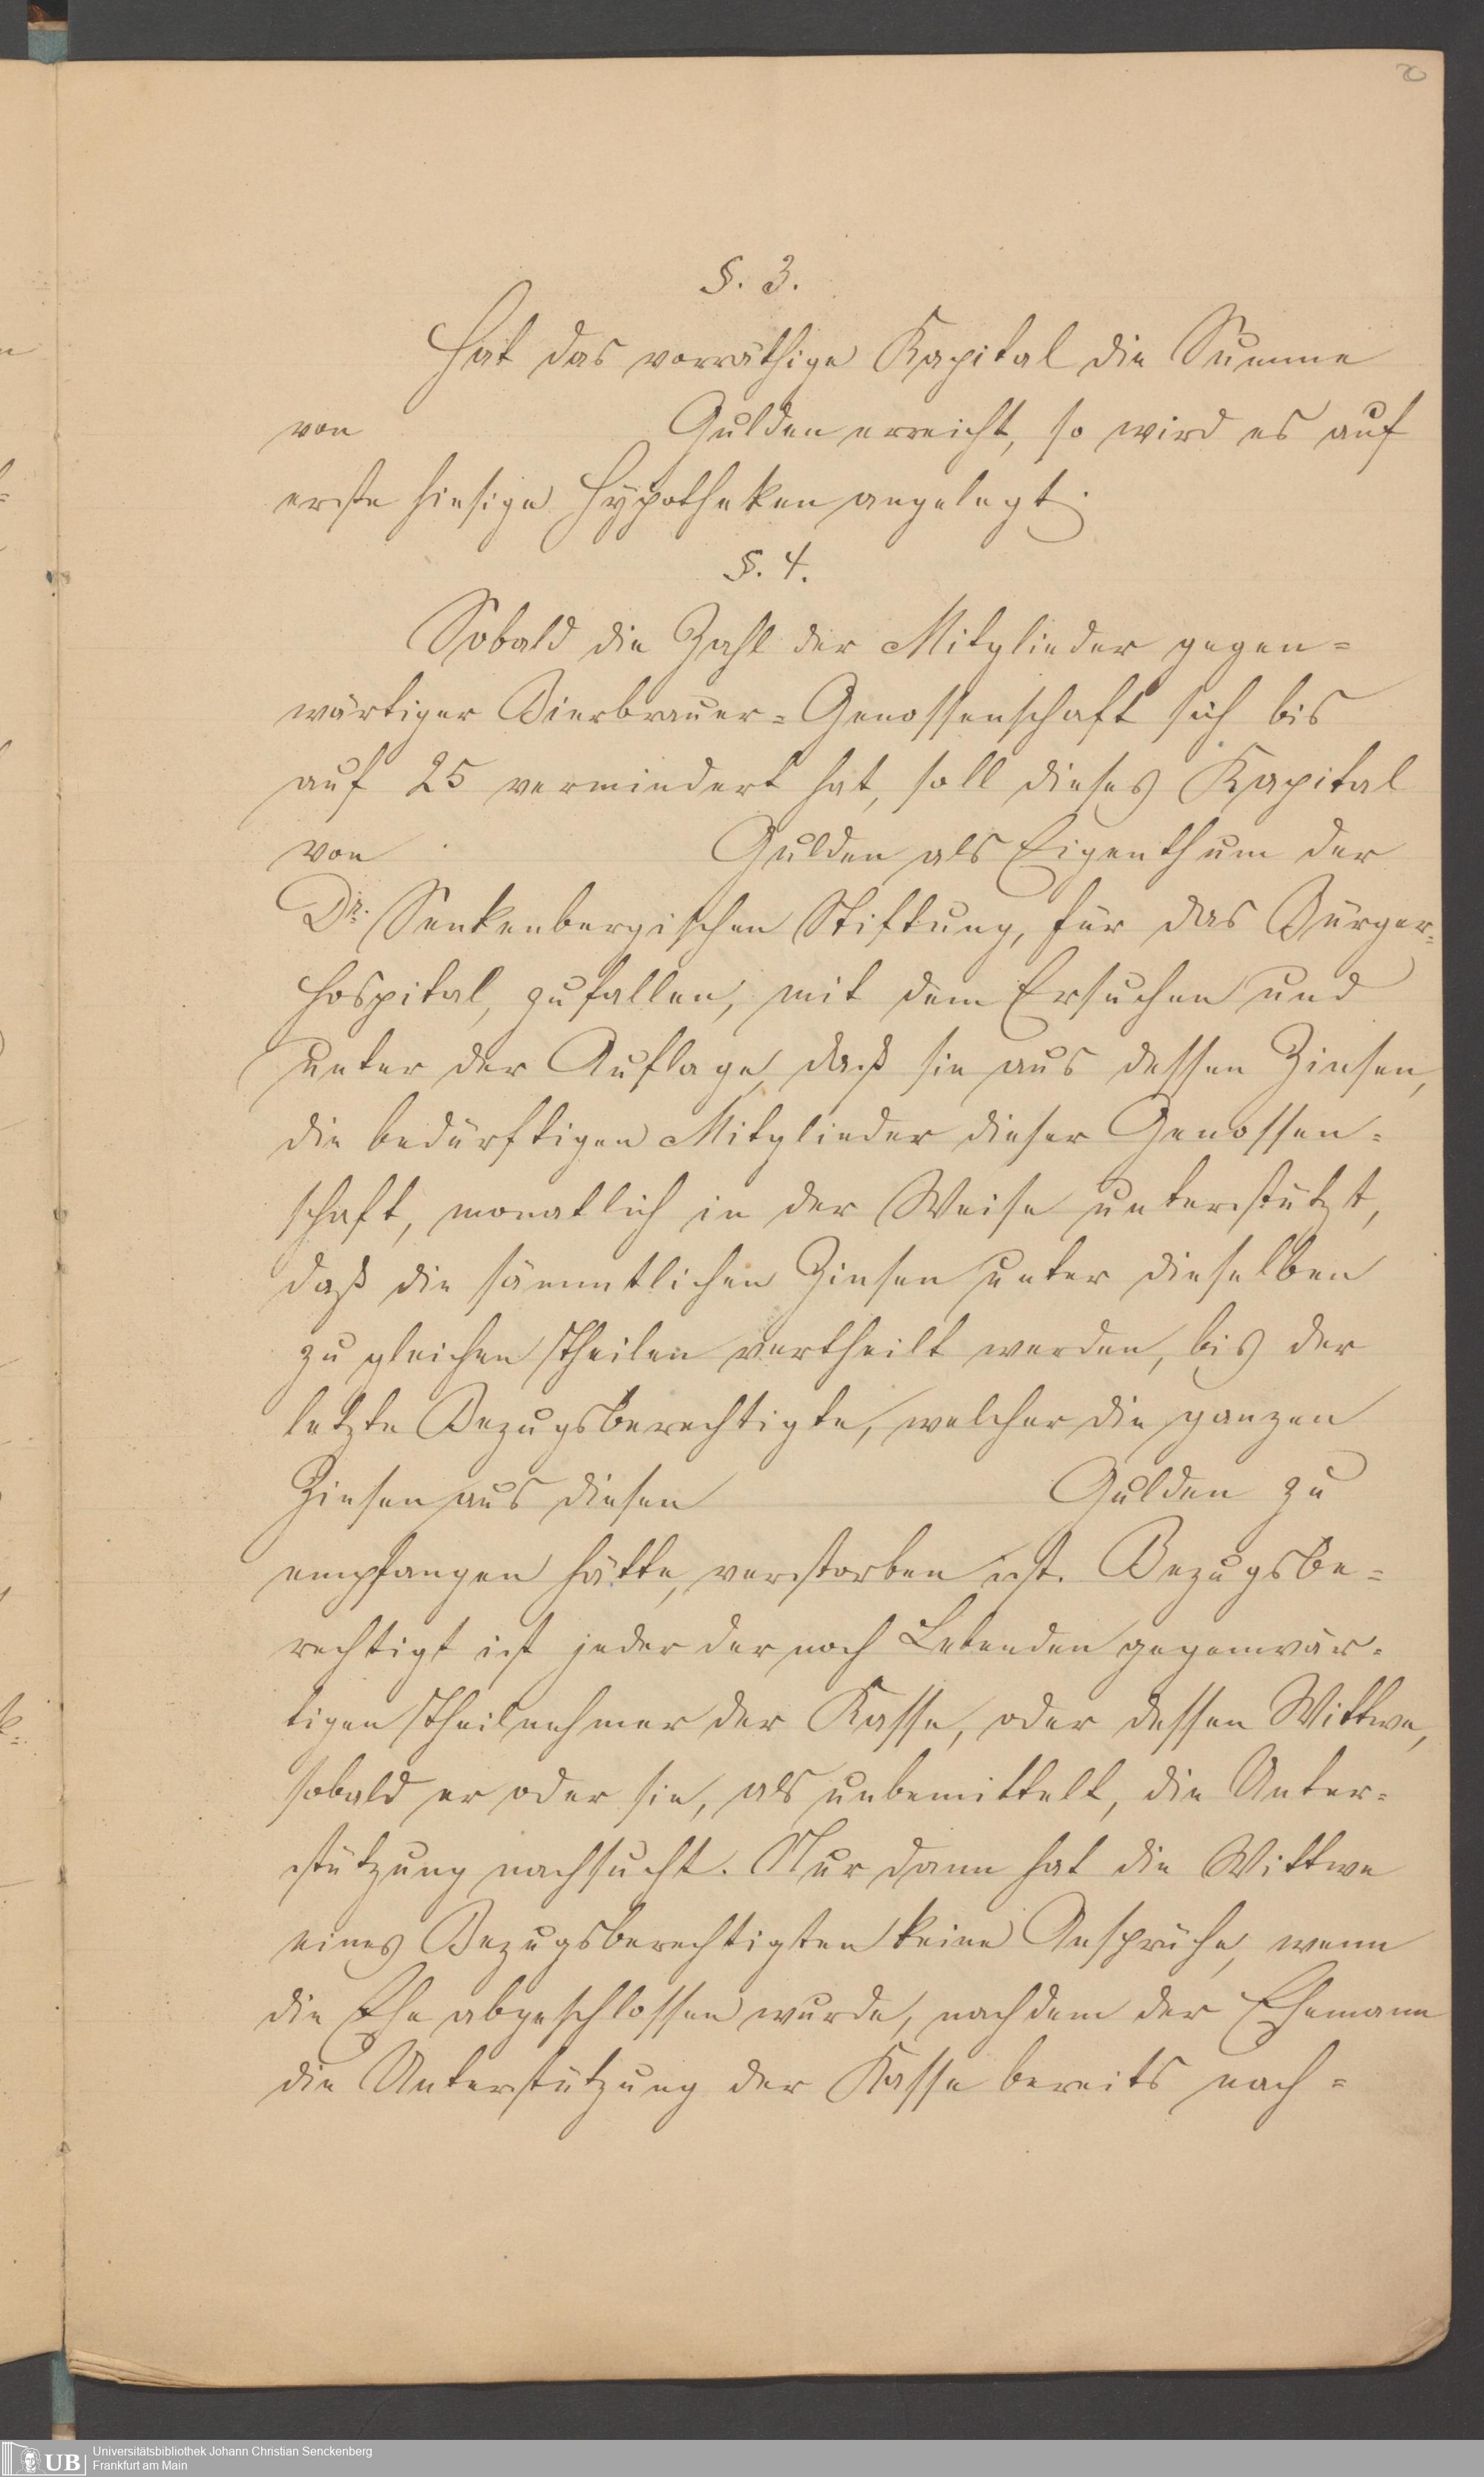 20
§. 3.
Hat das vorräthige Kapital die Summe
von Gulden erreicht, so wird es auf
erste hiesige Hypotheken angelegt.
§. 4.
Sobald die Zahl der Mitglieder gegen=
wärtiger Bierbrauer=Genossenschaft sich bis
auf 25 vermindert hat, soll dieses Kapital
von Gulden als Eigenthum der
Dr. Senkenbergischen Stiftung, für das Bürger=
hospital, zufallen, mit dem Ersuchen und
unter der Auflage, daß sie aus dessen Zinsen,
die bedürftigen Mitglieder dieser Genossen=
schaft, monatlich in der Weise unterstützt,
daß die sämmtlichen Zinsen unter dieselben
zu gleichen Theilen vertheilt werden, bis der
letzte Bezugsberechtigte, welcher die ganzen
Zinsen aus diesen Gulden zu
empfangen hätte, verstorben ist. Bezugsbe=
rechtigt ist jeder der noch Lebenden gegenwär=
tigen Theilnehmer der Kasse, oder dessen Wittwe,
sobald er oder sie, als unbemittelt, die Unter=
stützung nachsucht. Nur dann hat die Wittwe
eines Bezugsberechtigten keine Ansprüche, wenn
die Ehe abgeschlossen wurde, nachdem der Ehemann
die Unterstützung der Kasse bereits nach=
UB Universitätsbibliothek Johann Christian Senckenberg
Frankfurt am Main